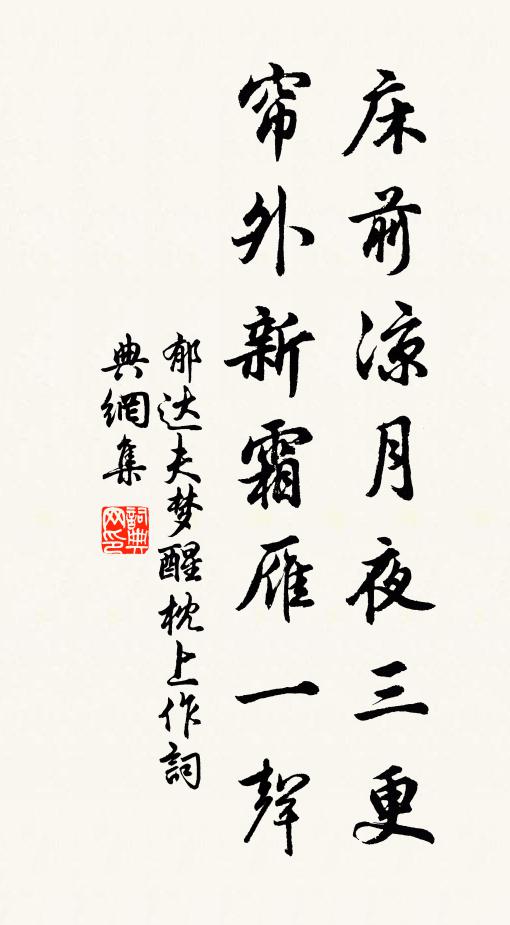 床前凉月夜三更
帘外新霜雁一聲
郁达夫梦醒枕上作詞
典網集
詞典网印